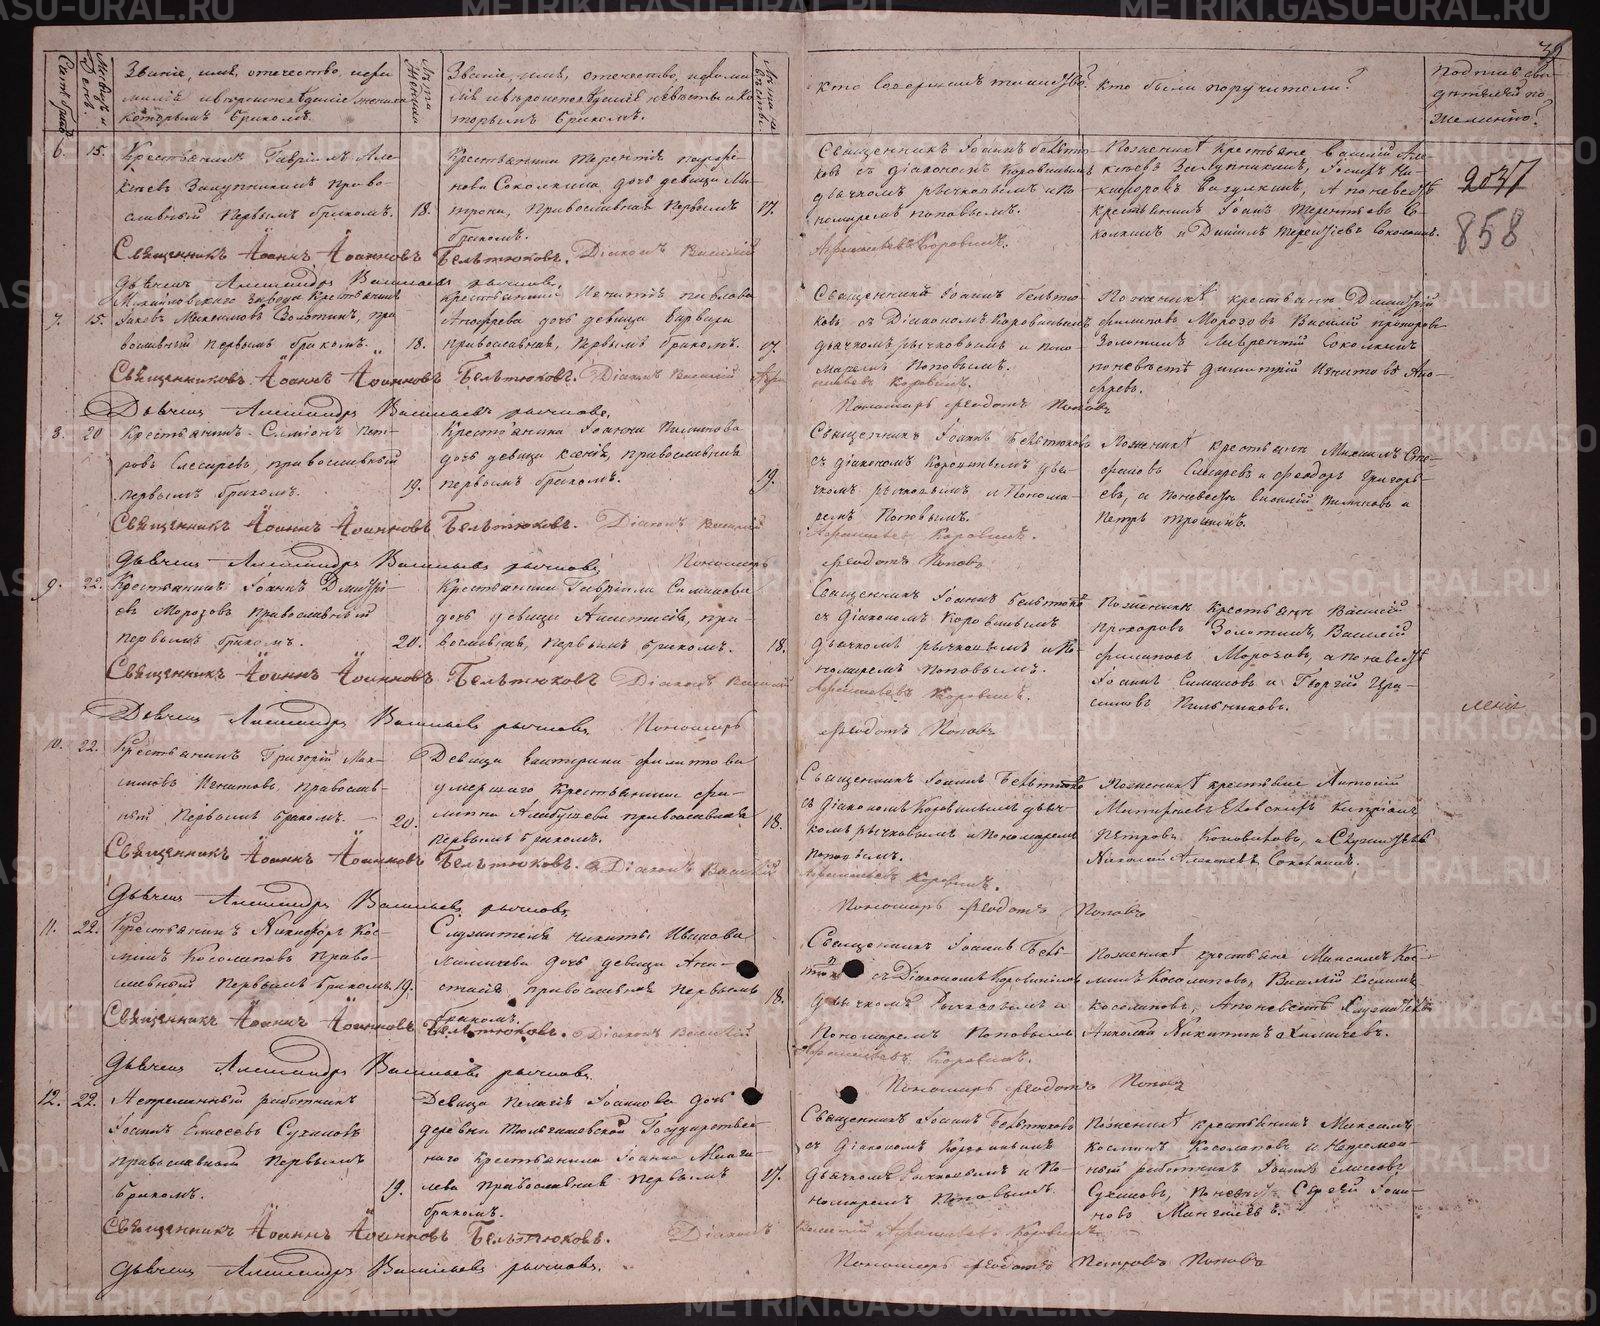 39
Счет браковъ
Мѣсяцъ и день.
Званіе, имя, отечество, фами
лія и вѣроисповѣданіе жениха
которымъ бракомъ.
Лѣта жениха
Званіе, имя, отечество, фами
лія и вѣроисповѣданіе невѣсты и ко
торымъ бракомъ.
Лѣта невѣсты
Кто совершалъ таинство?
Кто были поручители?
Подпись сви
дѣтелей по
желанію?
6. 15.
Крестьянинъ Гавріилъ Але
православный первымъ бракомъ. 18.
Крестьянина Терентія
нова Соколкина, дочь девица Ма
трона, Православная первымъ
бракомъ. 17.
Священникъ Іоаннъ Бельтю
ковъ съ діакономъ Коровинымъ
дьячкомъ Рычковымъ и По
номаремъ Поповымъ.
По женихѣ крестьяне Василій Але
а по невестѣ
крестьянинъ Іоаннъ Терентьевъ Со
колкинъ и Даніилъ Терентіевъ Соколкинъ.
2037
858
Священникъ Іоаннъ Іоанновъ Бельтюковъ. Діаконъ Василій
Афанасьевъ Коровинъ.
Дьячекъ Александръ Васильевъ Рычковъ.
7. 15.
Михайловскаго завода Крестьянинъ
Іаковъ Максимовъ Золотинъ, пра
вославный первымъ бракомъ. 18.
Крестьянина Игнатія Павлова
Ануфрева дочь девица Варвара
православная, первымъ бракомъ. 17.
Священникъ Іоаннъ Бельтю
ковъ съ Діакономъ Коровинымъ
дьячкомъ Рычковымъ и Поно
маремъ Поповымъ.
По женихѣ крестьяне Димитрій
Филиповъ Морозовъ Василій Прохоровъ
Золотинъ Лаврентій Соколкинъ
по невѣстѣ Димитрій Игнатовъ Ану
фревъ.
Священникъ Іоаннъ Іоанновъ Бельтюковъ. Діаконъ Василій Афа
насьевъ Коровинъ.
Дьячекъ Александръ Васильевъ Рычковъ.
Пономарь Феодотъ Поповъ
8. 20
Крестьянинъ Симеонъ Пет
ровъ Слесаревъ, православный
первымъ бракомъ. 19.
Крестьянина Іоанна Пилникова
дочь девица Ксенія, православная
первымъ бракомъ. 19.
Священникъ Іоаннъ Бельтюковъ
съ діакономъ Коровинымъ дья
чкомъ Рычковымъ и Понома
ремъ Поповымъ.
По женихѣ крестьяне Михаилъ Сте
фановъ Слесаревъ и Феодоръ Григорь
евъ, а по невестѣ Василій Пилниковъ и
Петръ Трошинъ.
Священникъ Іоаннъ Іоанновъ Бельтюковъ. Діаконъ Василій
Афанасьевъ Коровинъ.
Дьячекъ Александръ Васильевъ Рычковъ Пономарь
Феодотъ Поповъ
9. 22.
Крестьянинъ Іоаннъ Дмитрі
евъ Морозовъ православный
первымъ бракомъ. 20.
Крестьянина Гавріила Симакова
дочь девица Анастасія, пра
вославная, первымъ бракомъ. 18.
Священникъ Іоаннъ Бельтюко
съ діакономъ Коровинымъ
дьячкомъ Рычковымъ и По
номаремъ Поповымъ.
По женихѣ крестьяне Василій
Прохоровъ Золотинъ, Василій
Филиповъ Морозовъ, а по невестѣ
Іоаннъ Симаковъ и Георгій Гера
симовъ Пильниковъ.
Священникъ Іоаннъ Іоанновъ Бельтюковъ Діаконъ Василій
Афанасьевъ Коровинъ.
Дьячекъ Александръ Васильевъ Рычковъ Пономарь
Феодотъ Поповъ
10. 22.
Крестьянинъ Григорій Мак
симовъ Игнатовъ, православ
ный Первымъ бракомъ. 20.
Девица Екатерина Филипова
умершаго крестьянина Фи
липпа православная
первымъ бракомъ. 18.
Священникъ Іоаннъ Бельтюковъ
съ діакономъ Коровинымъ дьяч
комъ Рычковымъ и Пономаремъ
Поповымъ.
По женихѣ крестьяне Антоній
Кипріанъ
Петровъ и Служитель
Николай Алексѣевъ
Священникъ Іоаннъ Іоанновъ Бельтюковъ. Діаконъ Василій
Афанасьевъ Коровинъ.
Дьячекъ Александръ Васильевъ Рычковъ
Пономарь Феодотъ Поповъ
11. 22.
Крестьянинъ Никифоръ Кос
минъ Косолаповъ право
славный Первымъ бракомъ. 19.
Служителя Никиты Иванова
Халичева дочь девица Ана
стасія, православная первымъ
бракомъ. 18.
Священникъ Іоаннъ Бель
съ Діакономъ Коровинымъ
дьячкомъ Рычковымъ и
Пономаремъ Поповымъ
По женихѣ крестьяне Максимъ Кос
минъ Косолаповъ, Василій Косминъ
Косолаповъ, А по невестѣ Служитель
Николай Никитинъ Халичевъ.
Священникъ Іоаннъ Іоанновъ Бельтюковъ. Діаконъ Василій
Афанасьевъ Коровинъ.
Дьячекъ Александръ Васильевъ Рычковъ.
Пономарь Феодотъ Поповъ
12. 22.
Непременный работникъ
Іоаннъ Елисеевъ Сухановъ
православный Первымъ
бракомъ. 19.
Девица Пелагія Іоаннова дочь
деревни Тюльгашевской Государствен
наго крестьянина Іоанна Манга
лева православная первымъ
бракомъ. 17.
Священникъ Іоаннъ Бельтюковъ
съ діакономъ Коровинымъ
дьячкомъ Рычковымъ и По
номаремъ Поповымъ.
По женихѣ крестьянинъ Максимъ
Косминъ Косолаповъ и Непремен
ный работникъ Іоаннъ Елисеевъ
Сухановъ, по невестѣ Сергей Іоан
новъ Мангалевъ.
Священникъ Іоаннъ Іоанновъ Бельтюковъ. Діаконъ Василій Афанасьевъ Коровинъ.
Дьячекъ Александръ Васильевъ Рычковъ. Пономарь Феодотъ Петровъ Поповъ
METRIKI.GASO-URAL.RU